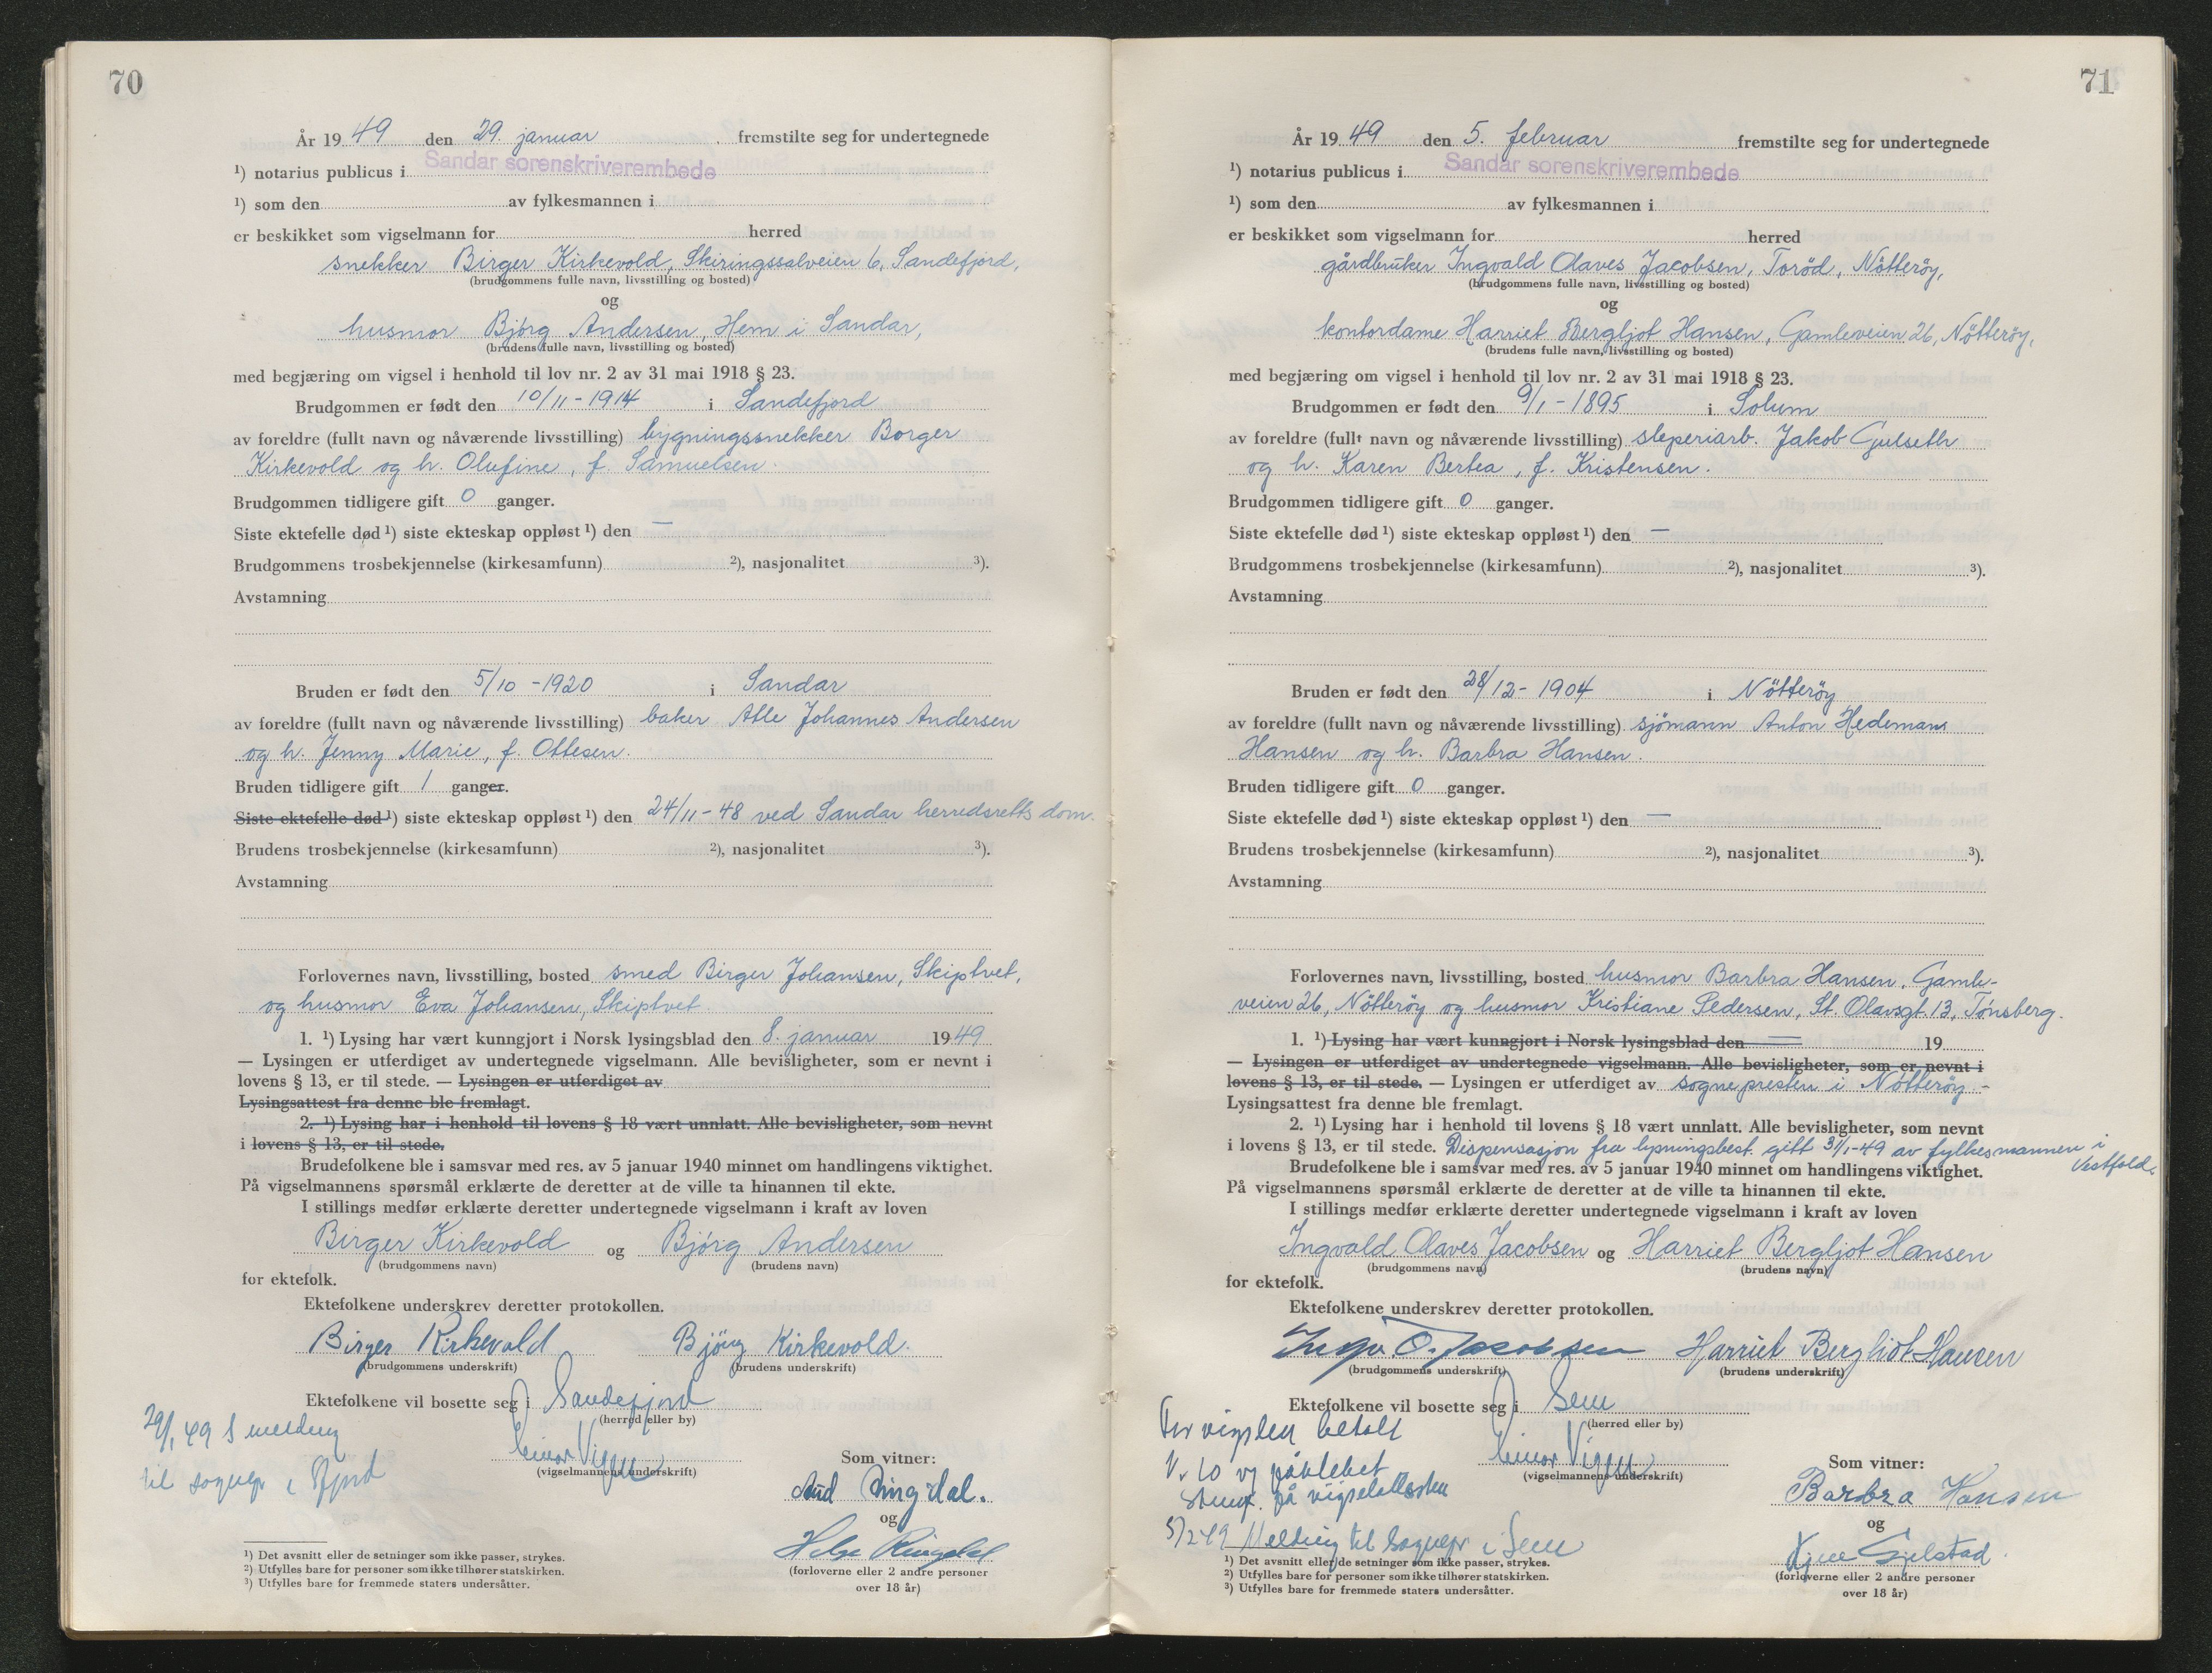 70
År 1949 den 29. januar fremstilte seg for undertegnede
¹) notarius publicus i Sandar sorenskriverembede
¹) som den av fylkesmannen i
er beskikket som vigselmann for herred
snekker Birger Kirkevold, Skiringssalveien 6, Sandefjord,
(brudgommens fulle navn, livsstilling og bosted)
og
husmor Bjørg Andersen, Hem i Sandar,
(brudens fulle navn, livsstilling og bosted)
med begjæring om vigsel i henhold til lov nr. 2 av 31 mai 1918 § 23.
Brudgommen er født den 10/11-1914 i Sandefjord
av foreldre (fullt navn og nåværende livsstilling) bygningssnekker Borger
Kirkevold og h. Olufine, f. Samuelsen.
Brudgommen tidligere gift 0 ganger.
Siste ektefelle død ¹) siste ekteskap oppløst ¹) den —
Brudgommens trosbekjennelse (kirkesamfunn) ²), nasjonalitet ³).
Avstamning
Bruden er født den 5/10-1920 i Sandar
av foreldre (fullt navn og nåværende livsstilling) baker Atle Johannes Andersen
og h. Jenny Marie, f. Ottesen.
Bruden tidligere gift 1 ganger.
Siste ektefelle død ¹) siste ekteskap oppløst ¹) den 24/11-48 ved Sandar herredsretts dom.
Brudens trosbekjennelse (kirkesamfunn) ²), nasjonalitet ³).
Avstamning
Forlovernes navn, livsstilling, bosted smed Birger Johansen, Skiptvet,
og husmor Eva Johansen, Skiptvet.
1. ¹) Lysing har vært kunngjort i Norsk lysingsblad den 8. januar 1949
— Lysingen er utferdiget av undertegnede vigselmann. Alle bevisligheter, som er nevnt i
lovens § 13, er til stede. — Lysingen er utferdiget av
Lysingsattest fra denne ble fremlagt.
2. ¹) Lysing har i henhold til lovens § 18 vært unnlatt. Alle bevisligheter, som nevnt
i lovens § 13, er til stede.
Brudefolkene ble i samsvar med res. av 5 januar 1940 minnet om handlingens viktighet.
På vigselmannens spørsmål erklærte de deretter at de ville ta hinannen til ekte.
I stillings medfør erklærte deretter undertegnede vigselmann i kraft av loven
Birger Kirkevold og Bjørg Andersen
(brudgommens navn) (brudens navn)
for ektefolk.
Ektefolkene underskrev deretter protokollen.
Birger Kirkevold Bjørg Kirkevold.
(brudgommens underskrift) (brudens underskrift)
Ektefolkene vil bosette seg i Sandefjord
(herred eller by)
29/1 49 melding
til sognepr i Sfjord
Einar Viggen
(vigselmannens underskrift)
Som vitner:
Aud Ringdal.
og
Helge Ringdal
(forloverne eller 2 andre personer
over 18 år)
¹) Det avsnitt eller de setninger som ikke passer, strykes.
²) Utfylles bare for personer som ikke tilhører statskirken.
³) Utfylles bare for fremmede staters undersåtter.
71
År 1949 den 5. februar fremstilte seg for undertegnede
¹) notarius publicus i Sandar sorenskriverembede
¹) som den av fylkesmannen i
er beskikket som vigselmann for herred
gårdbruker Ingvald Olaves Jacobsen, Torød, Nötteröy,
(brudgommens fulle navn, livsstilling og bosted)
og
kontordame Harriet Bergljot Hansen, Gamleveien 26, Nötteröy,
(brudens fulle navn, livsstilling og bosted)
med begjæring om vigsel i henhold til lov nr. 2 av 31 mai 1918 § 23.
Brudgommen er født den 9/1-1895 i Solum
av foreldre (fullt navn og nåværende livsstilling) sleperiarb. Jakob Gulseth
og h. Karen Bertea, f. Kristensen.
Brudgommen tidligere gift 0 ganger.
Siste ektefelle død ¹) siste ekteskap oppløst ¹) den —
Brudgommens trosbekjennelse (kirkesamfunn) ²), nasjonalitet ³).
Avstamning
Bruden er født den 28/12-1904 i Nötteröy
av foreldre (fullt navn og nåværende livsstilling) sjömann Anton Hedemans
Hansen og h. Barbra Hansen.
Bruden tidligere gift 0 ganger.
Siste ektefelle død ¹) siste ekteskap oppløst ¹) den —
Brudens trosbekjennelse (kirkesamfunn) ²), nasjonalitet ³).
Avstamning
Forlovernes navn, livsstilling, bosted husmor Barbra Hansen, Gamle-
veien 26, Nötteröy og husmor Kristiane Pedersen, St. Olavsgt. 13, Tønsberg.
1. ¹) Lysing har vært kunngjort i Norsk lysingsblad den — 19
— Lysingen er utferdiget av undertegnede vigselmann. Alle bevisligheter, som er nevnt i
lovens § 13, er til stede. — Lysingen er utferdiget av sognepresten i Nötteröy.-
Lysingsattest fra denne ble fremlagt.
2. ¹) Lysing har i henhold til lovens § 18 vært unnlatt. Alle bevisligheter, som nevnt
i lovens § 13, er til stede. Dispensasjon fra lysningsbest. gitt 31/1-49 av fylkesmannen i
Vestfold.
Brudefolkene ble i samsvar med res. av 5 januar 1940 minnet om handlingens viktighet.
På vigselmannens spørsmål erklærte de deretter at de ville ta hinannen til ekte.
I stillings medfør erklærte deretter undertegnede vigselmann i kraft av loven
Ingvald Olaves Jacobsen og Harriet Bergljot Hansen
(brudgommens navn) (brudens navn)
for ektefolk.
Ektefolkene underskrev deretter protokollen.
Ingv. O. Jacobsen Harriet Bergliot Hansen
(brudgommens underskrift) (brudens underskrift)
Ektefolkene vil bosette seg i Sem
(herred eller by)
For vigslen betalt
10 påklebet
på vigselattesten
5/2 49 Melding til sognepr i Sem
Einar Viggen
(vigselmannens underskrift)
Som vitner:
Barbra Hansen
og
Gjelstad.
(forloverne eller 2 andre personer
over 18 år)
¹) Det avsnitt eller de setninger som ikke passer, strykes.
²) Utfylles bare for personer som ikke tilhører statskirken.
³) Utfylles bare for fremmede staters undersåtter.